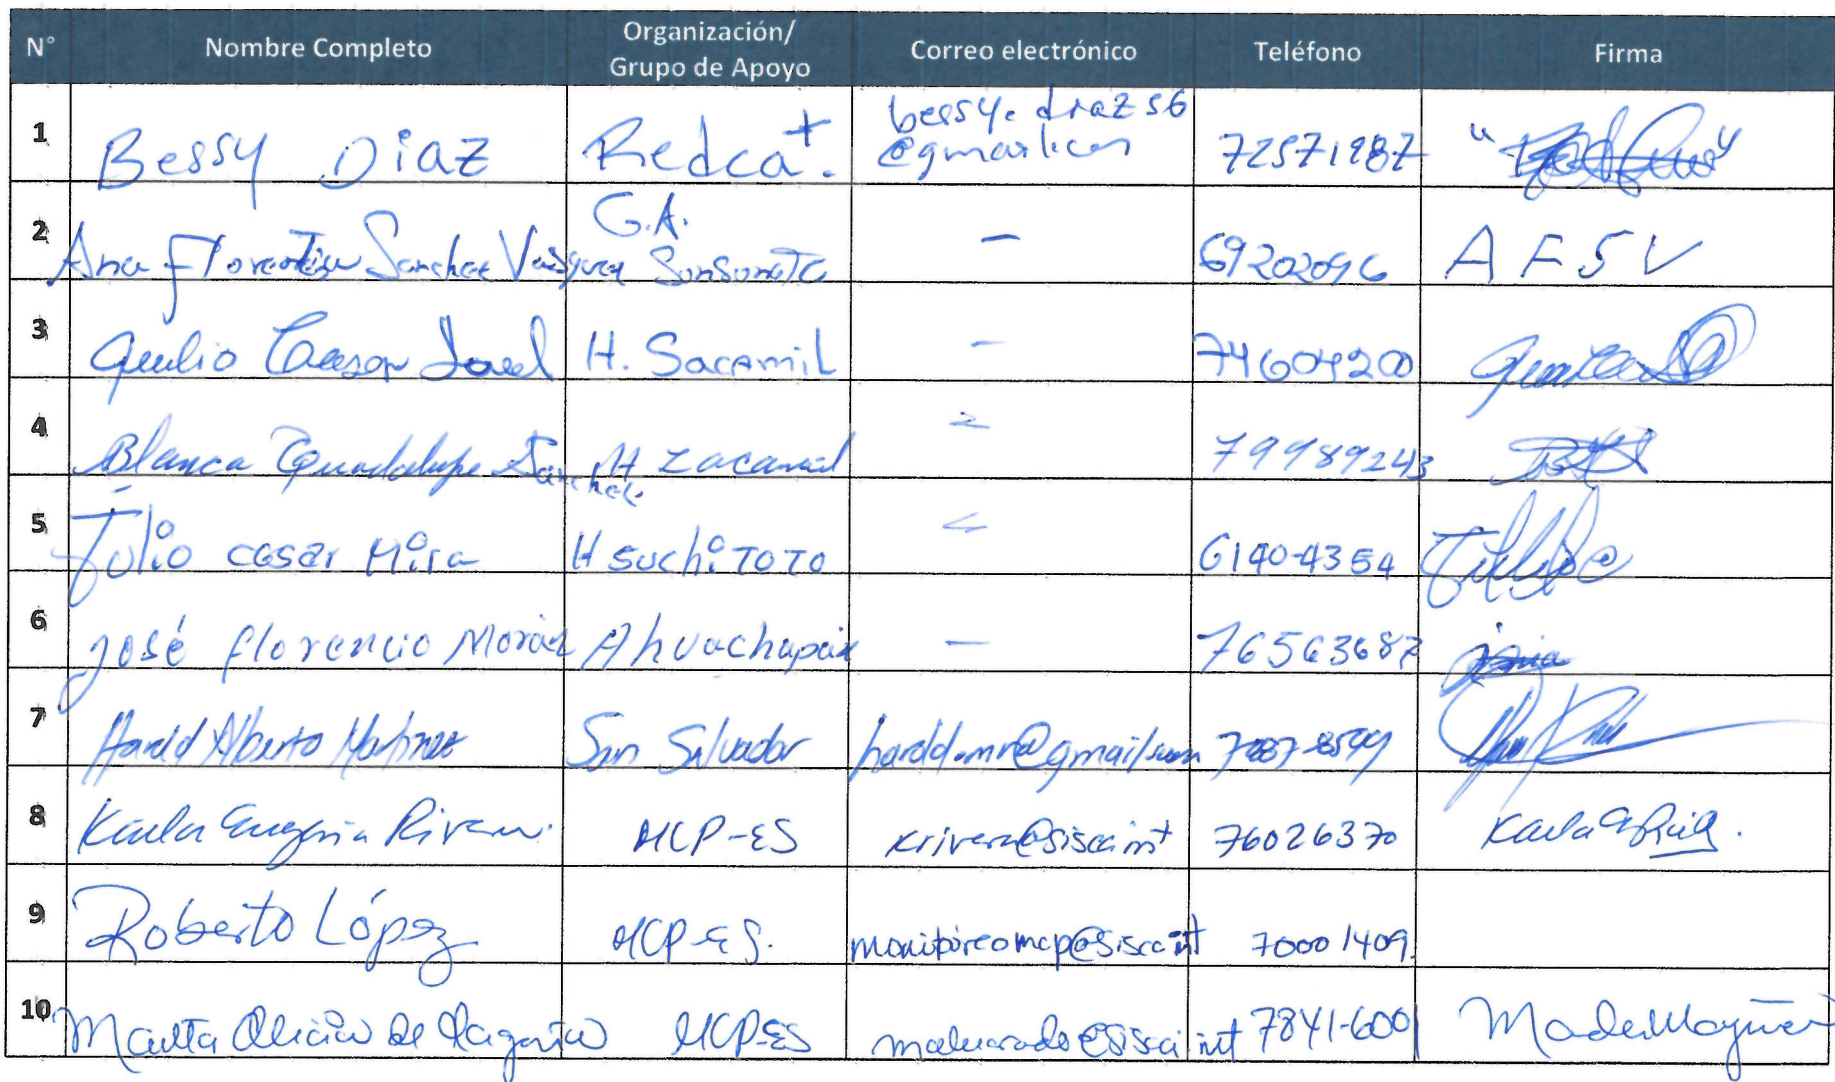 N° Nombre Completo Organización/ Grupo de Apoyo Correo electrónico Teléfono Firma
1 Bessy Diaz Redca+. bessy.diaz56 @gmail.com 72571987
2 Ana Florentina Sanchez Vasquez G.A. Sonsonate — 69202096 A F S V
3 H. Sacamil — 74604200
4 Blanca Guadalupe Sanchez H Zacamil - 79989243
5 Julio cesar Mira H suchiToTo - 6140-4354
6 José florencio Morán Ahuachapán — 76563687
7 Harold Alberto Martinez San Salvador harold.mr@gmail.com
8 Karla Eugenia Rivera. MCP-ES krivera@sisca.int 76026370
9 Roberto López MCP-ES. monitoreomcp@sisca.int 70001409.
10 Marta Alicia de Magaña MCP-ES malvarado@sisca.int 7841-6001